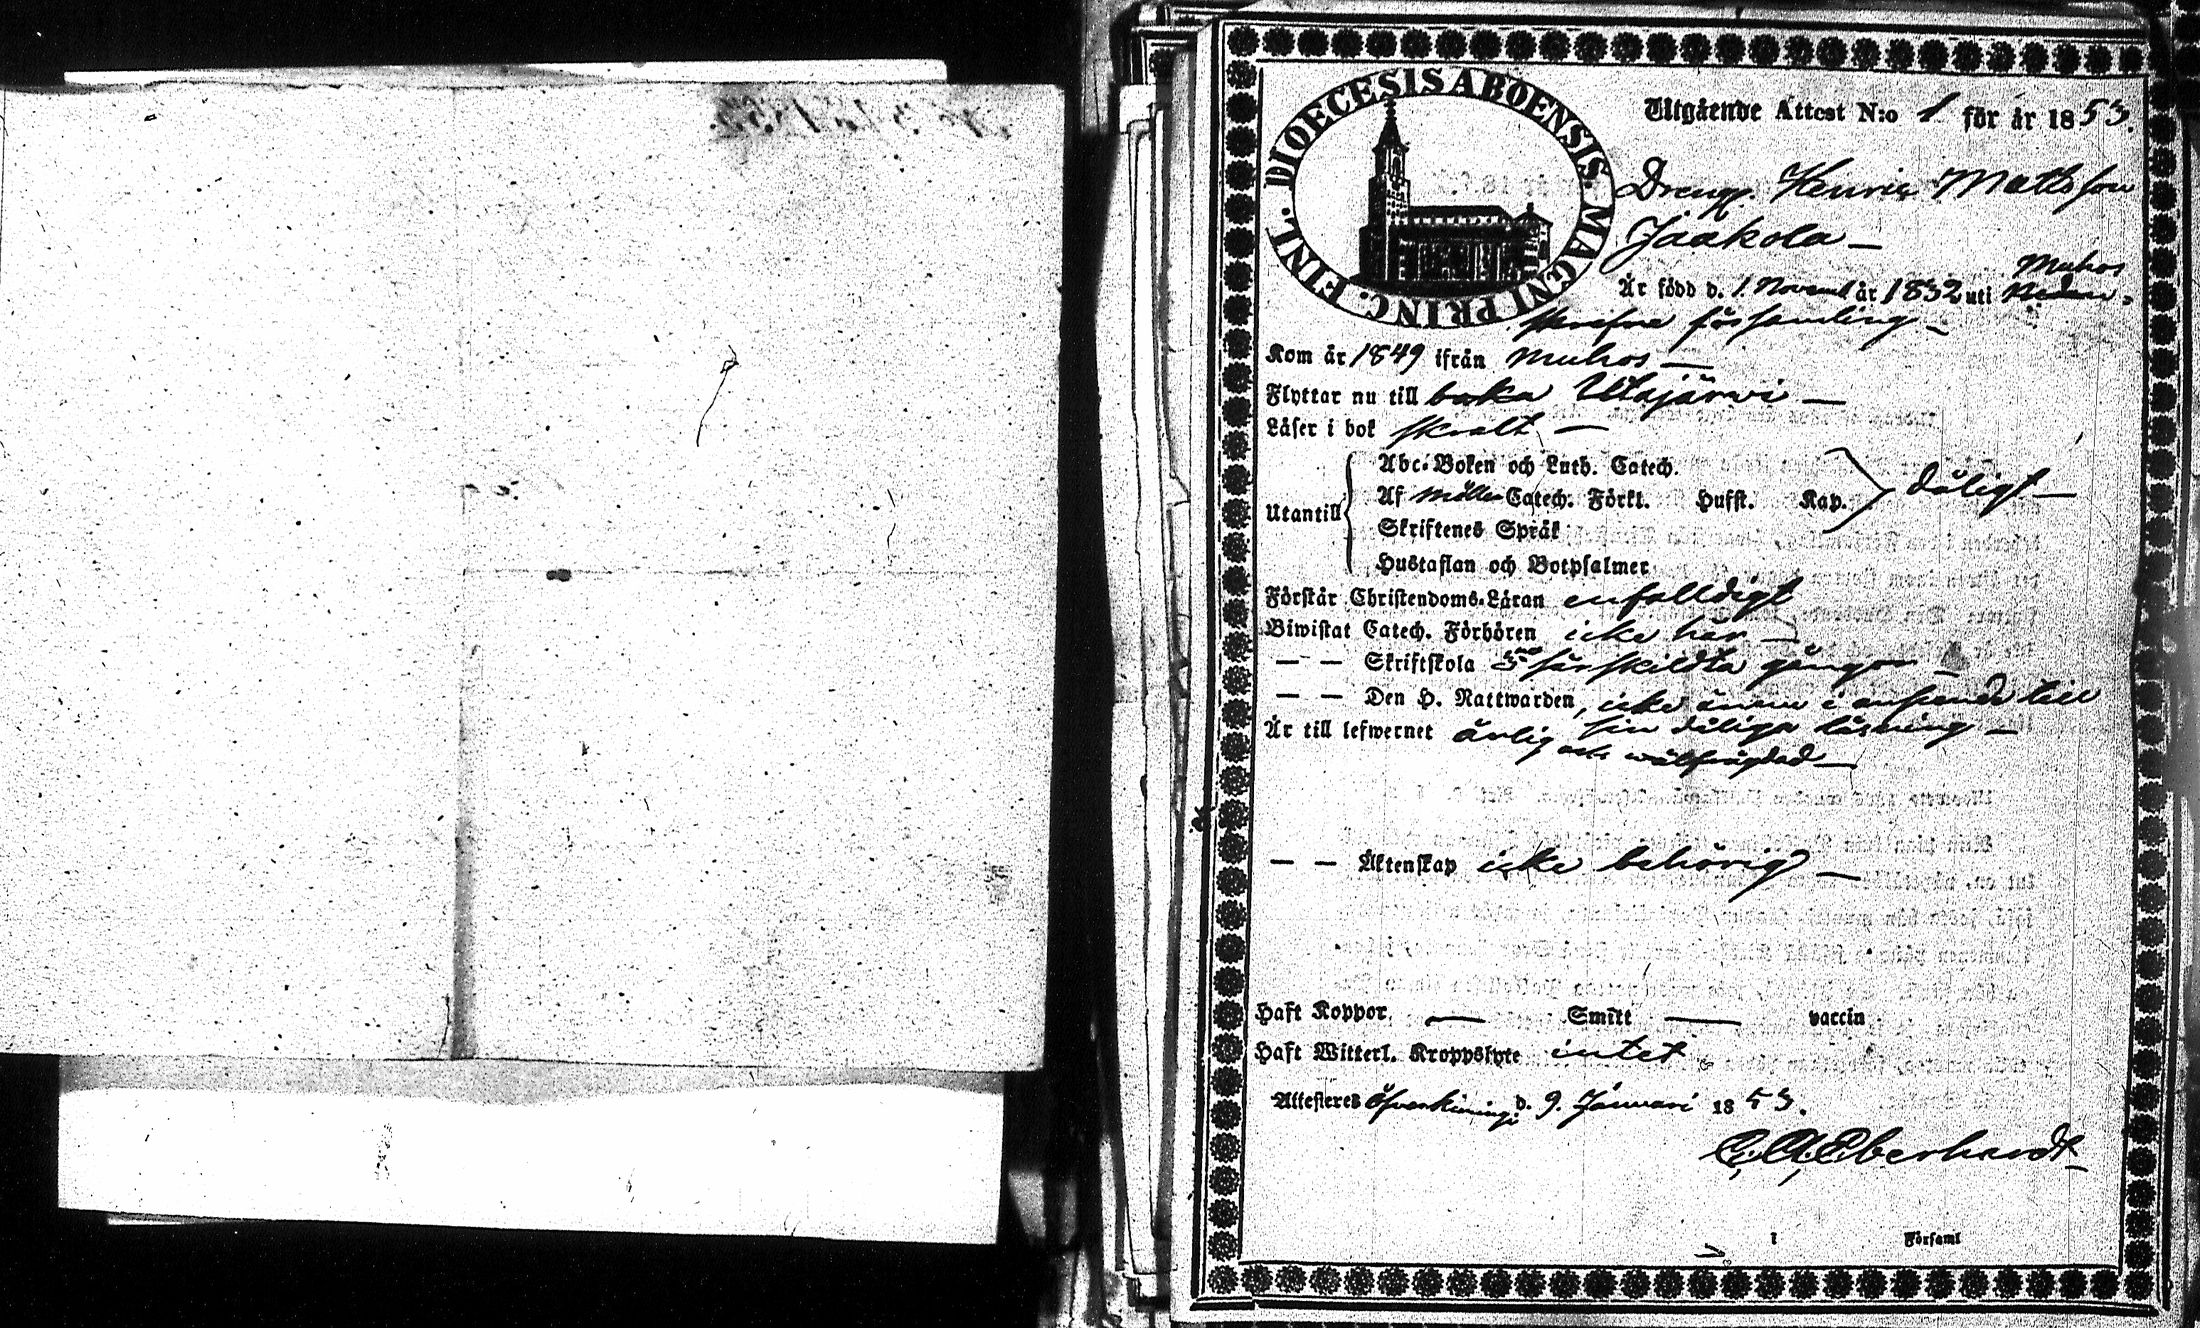 DIOECESIS ABOENSIS. MAGNI PRINC. FINL.
Utgående Attest N:o 1 för år 1853.
Dreng. Henric Mattsson
Jaakola —
Muhos
Är född d. 1. Novemb år 1832 uti
skrefne församling —
Kom år 1849 ifrån Muhos —
Flyttar nu till baka Utajärvi —
Läser i bok svalt —
Abc-Boken och Luth. Catech.
Af Möllers Catech. Förkl. Hufst. Kap. dåligt —
Utantill
Skriftenes Språk
Hustaflan och Botpsalmer
Förstår Christendoms-Läran enfalldigt
Biwistat Catech. Förhören icke här —
— — Skriftskola 5 särskildta gångor —
— — Den H. Nattwarden, icke ännu i anseende till
sin dåliga läsning —
Är till lefwernet ärlig och wälfrägdad —
— — Äktenskap icke behörig —
Haft Koppor — Smitt — vaccin
Haft Witterl. Kroppslyte intet
Attesteras Öfverkiming. d. 9. Januari 1853.
C. A. Eberhardt
i Församl